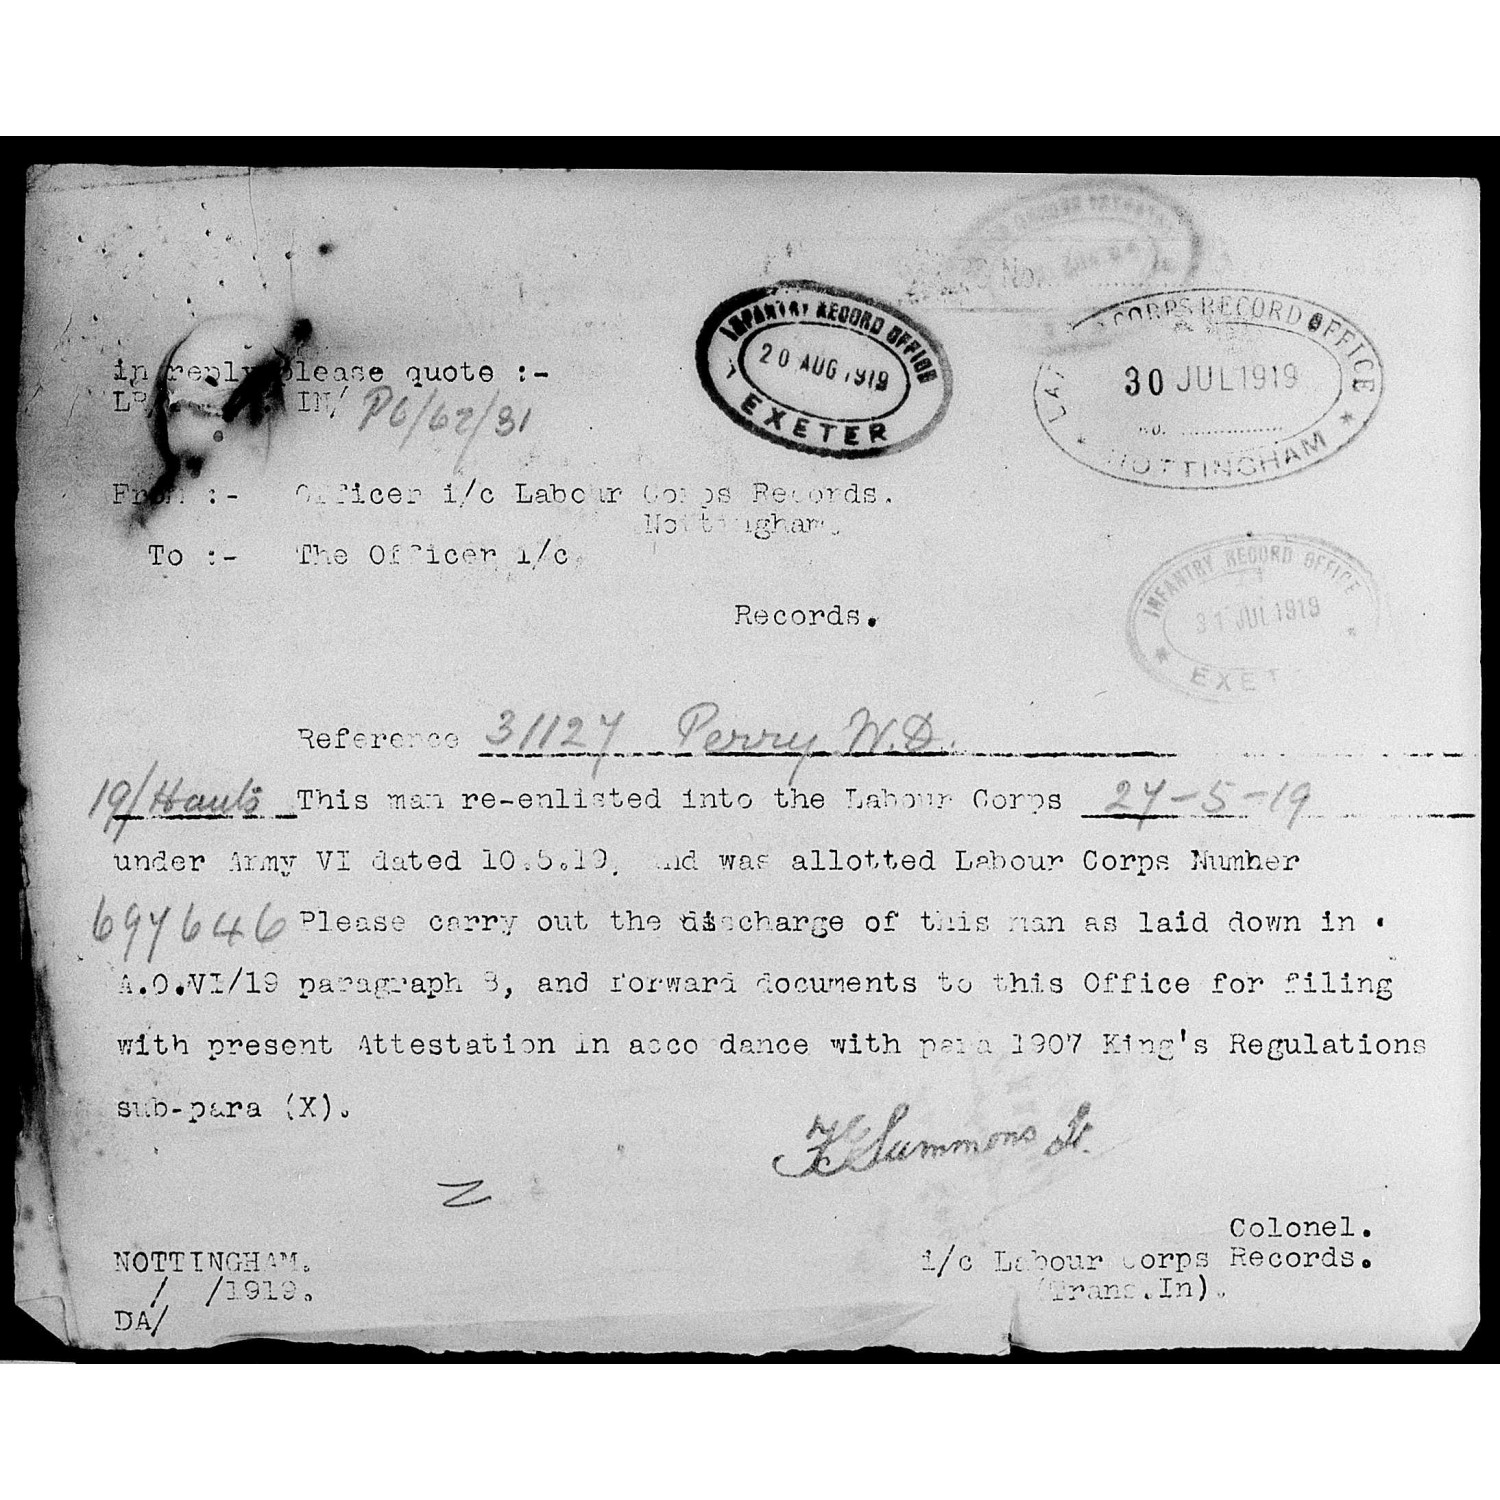 INFANTRY RECORD OFFICE
20 AUG 1919
EXETER
CORPS RECORD OFFICE
30 JUL 1919
No.
NOTTINGHAM
in reply please quote :-
IN/ PC/62/31
From :- Officer i/c Labour Corps Records.
Nottingham.
To :- The Officer i/c.
INFANTRY RECORD OFFICE
31 JUL 1919
EXET
Records.
Reference 31127 Perry W.D.
19/Hants This man re-enlisted into the Labour Corps 27-5-19
under Army VI dated 10.5.19, and was allotted Labour Corps Number
697646 Please carry out the discharge of this man as laid down in
A.O.VI/19 paragraph 8, and forward documents to this Office for filing
with present Attestation in accordance with para 1907 King's Regulations
sub-para (X).
Summons Lt.
Colonel.
NOTTINGHAM. i/c Labour Corps Records.
/ /1919. (Trans.In).
DA/